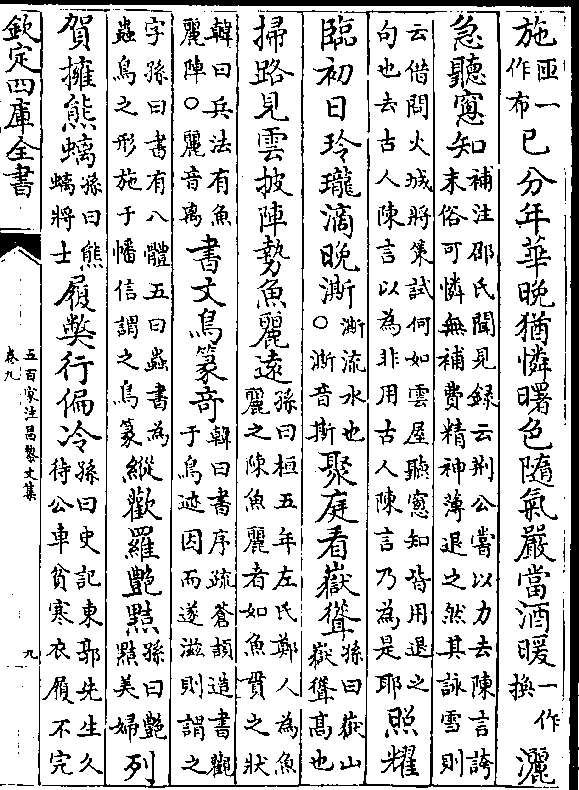 施匝一作布已分年華晚猶憐曙色隨氣嚴當酒暖一作換灑
急聽窻知補注邵氏聞見録云荆公嘗以力去陳言誇末俗可憐無補費精神薄退之然其詠雪則
云借問火城將策試何如雲屋聽窻知皆用退之句也去古人陳言以為非用古人陳言乃為是耶照耀
臨初日玲瓏滴晚澌澌流水也○澌音斯聚庭看嶽聳孫曰嶽山嶽聳高也
掃路見雲披陣勢魚麗遠孫曰桓五年左氏鄭人為魚麗之陳魚麗者如魚貫之狀
韓曰兵法有魚麗陣○麗音离書文鳥篆奇韓曰書序疏蒼頡造書觀于鳥迹因而遂滋則謂之
字孫曰書有八體五曰蟲書為蟲鳥之形施于幡信謂之鳥篆縱歡羅艶黠孫曰艶黠美婦列
賀擁熊螭孫曰熊螭將士履弊行偏冷孫曰史記東郭先生久待公車貧寒衣履不完
欽定四庫全書
五百家注昌黎文集
卷九
九